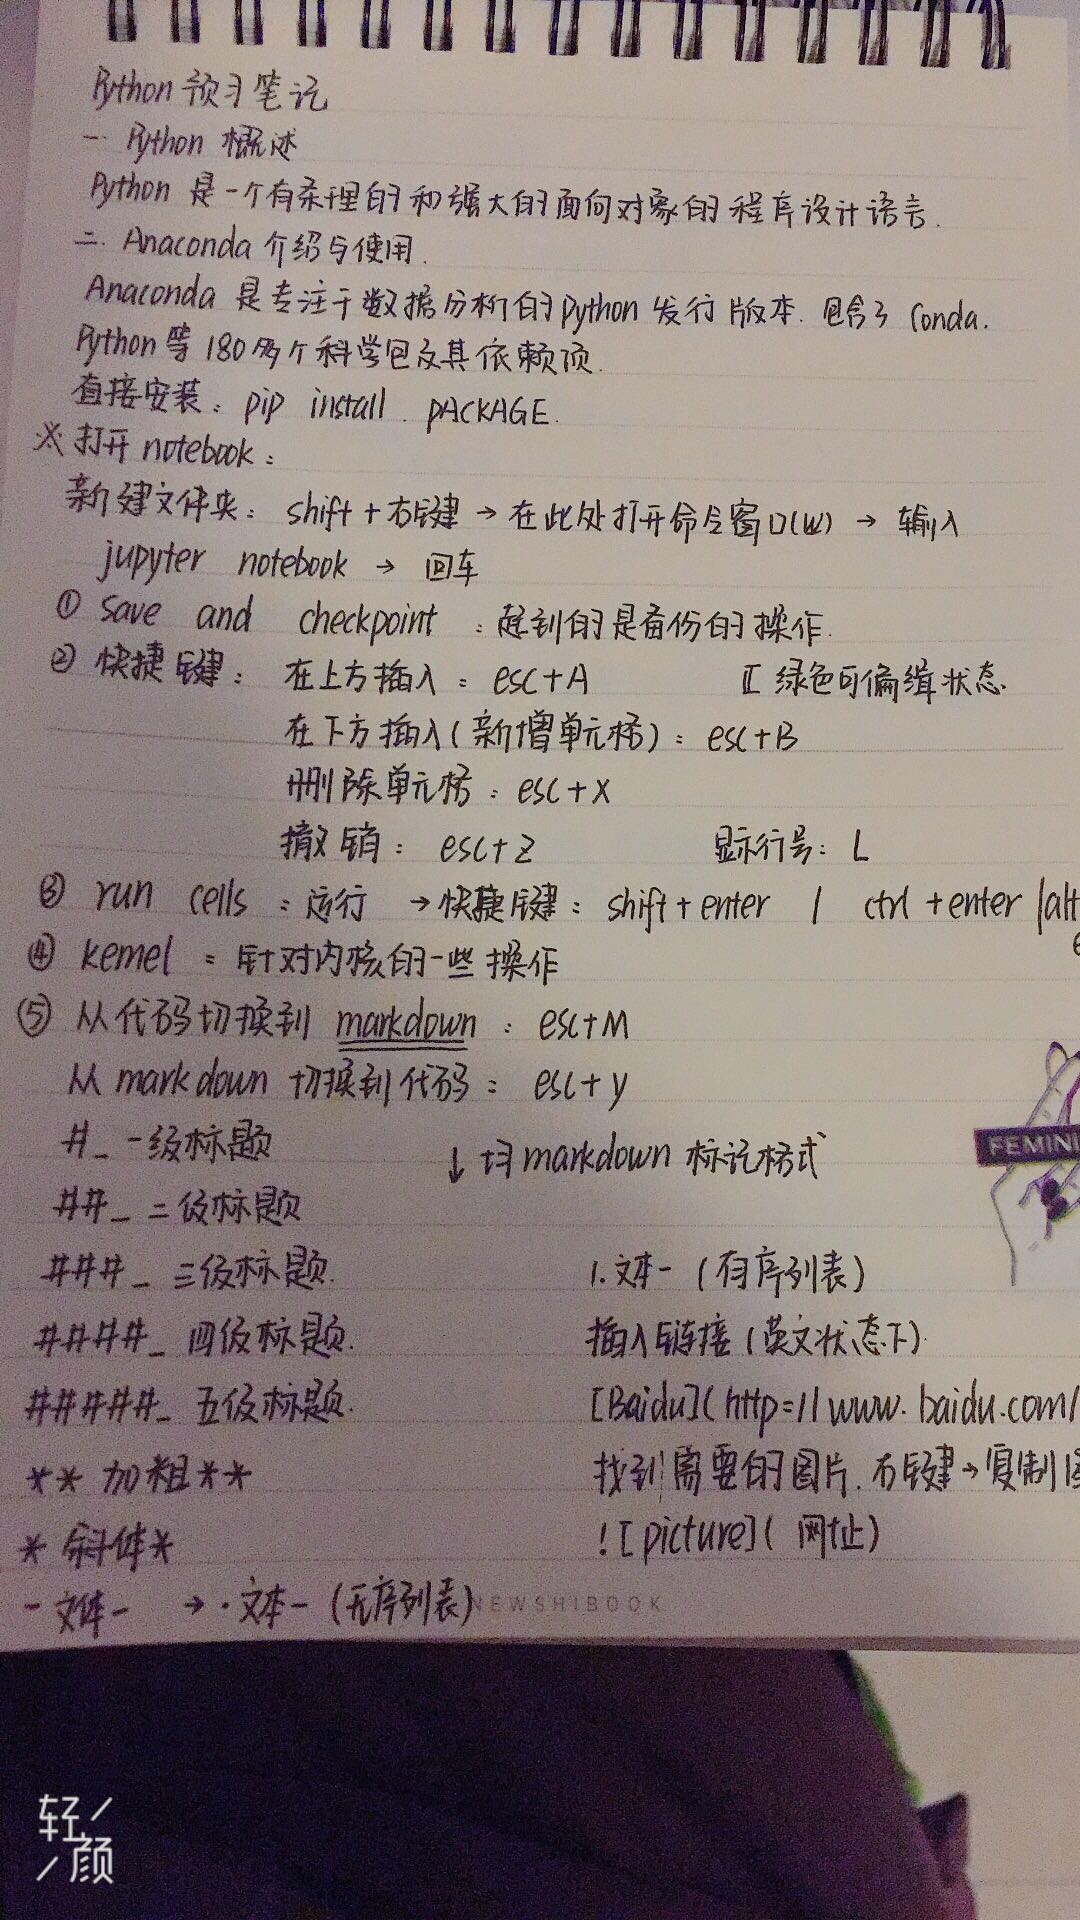 Python 预习笔记
一. Python 概述
Python 是一个有条理的和强大的面向对象的程序设计语言.
二. Anaconda 介绍与使用.
Anaconda 是专注于数据分析的Python 发行版本. 包含了 Conda.
Python等180多个科学包及其依赖项.
直接安装: pip install PACKAGE.
※ 打开 notebook:
新建文件夹: shift+右键 → 在此处打开命令窗口(W) → 输入
jupyter notebook → 回车
① save and checkpoint : 起到的是备份的操作.
② 快捷键: 在上方插入: esc+A 绿色可编辑状态.
在下方插入(新增单元格): esc+B
删除单元格: esc+X
撤销: esc+Z 显示行号: L
③ run cells : 运行 → 快捷键: shift+enter | ctrl+enter |alt
④ kernel : 针对内核的一些操作
⑤ 从代码切换到 markdown : esc+M
从 markdown 切换到代码: esc+y
#_ 一级标题 ↓ 均markdown 标记格式
##_ 二级标题
###_ 三级标题. 1.文本一 (有序列表)
####_ 四级标题. 插入链接(英文状态下).
#####_ 五级标题. [Baidu](http://www.baidu.com/
** 加粗** 找到需要的图片.右键→复制
* 斜体* ![picture](网址)
- 文本一 → ·文本一 (无序列表)
NEWSHIBOOK
FEMINI
轻颜